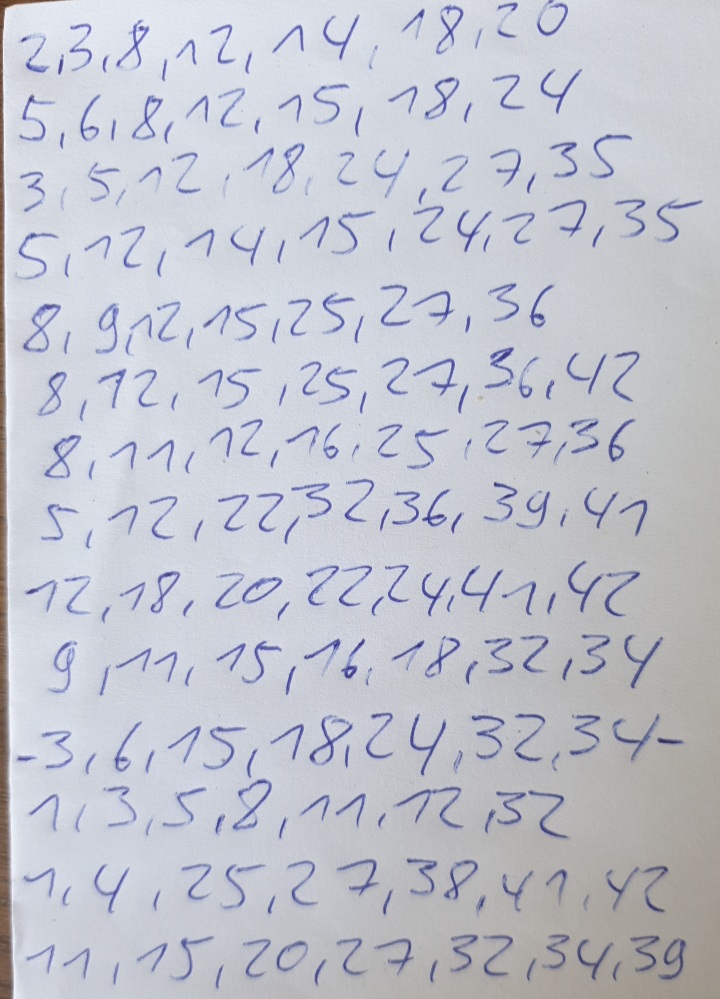 2,3,8,12,14,18,20
5,6,8,12,15,18,24
3,5,12,18,24,27,35
5,12,14,15,24,27,35
8,9,12,15,25,27,36
8,12,15,25,27,36,42
8,11,12,16,25,27,36
5,12,22,32,36,39,41
12,18,20,22,24,41,42
9,11,15,16,18,32,34
-3,6,15,18,24,32,34-
1,3,5,8,11,12,32
1,4,25,27,38,41,42
11,15,20,27,32,34,39